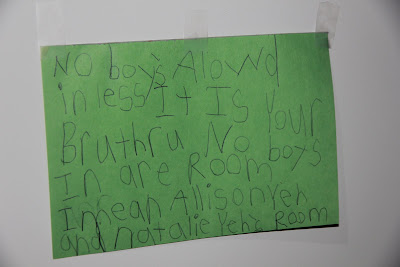 No boys Alowd
in less It Is Your
Bruthru No boys
In are Room
I mean Allison Yeh
and natalie Yehs Room